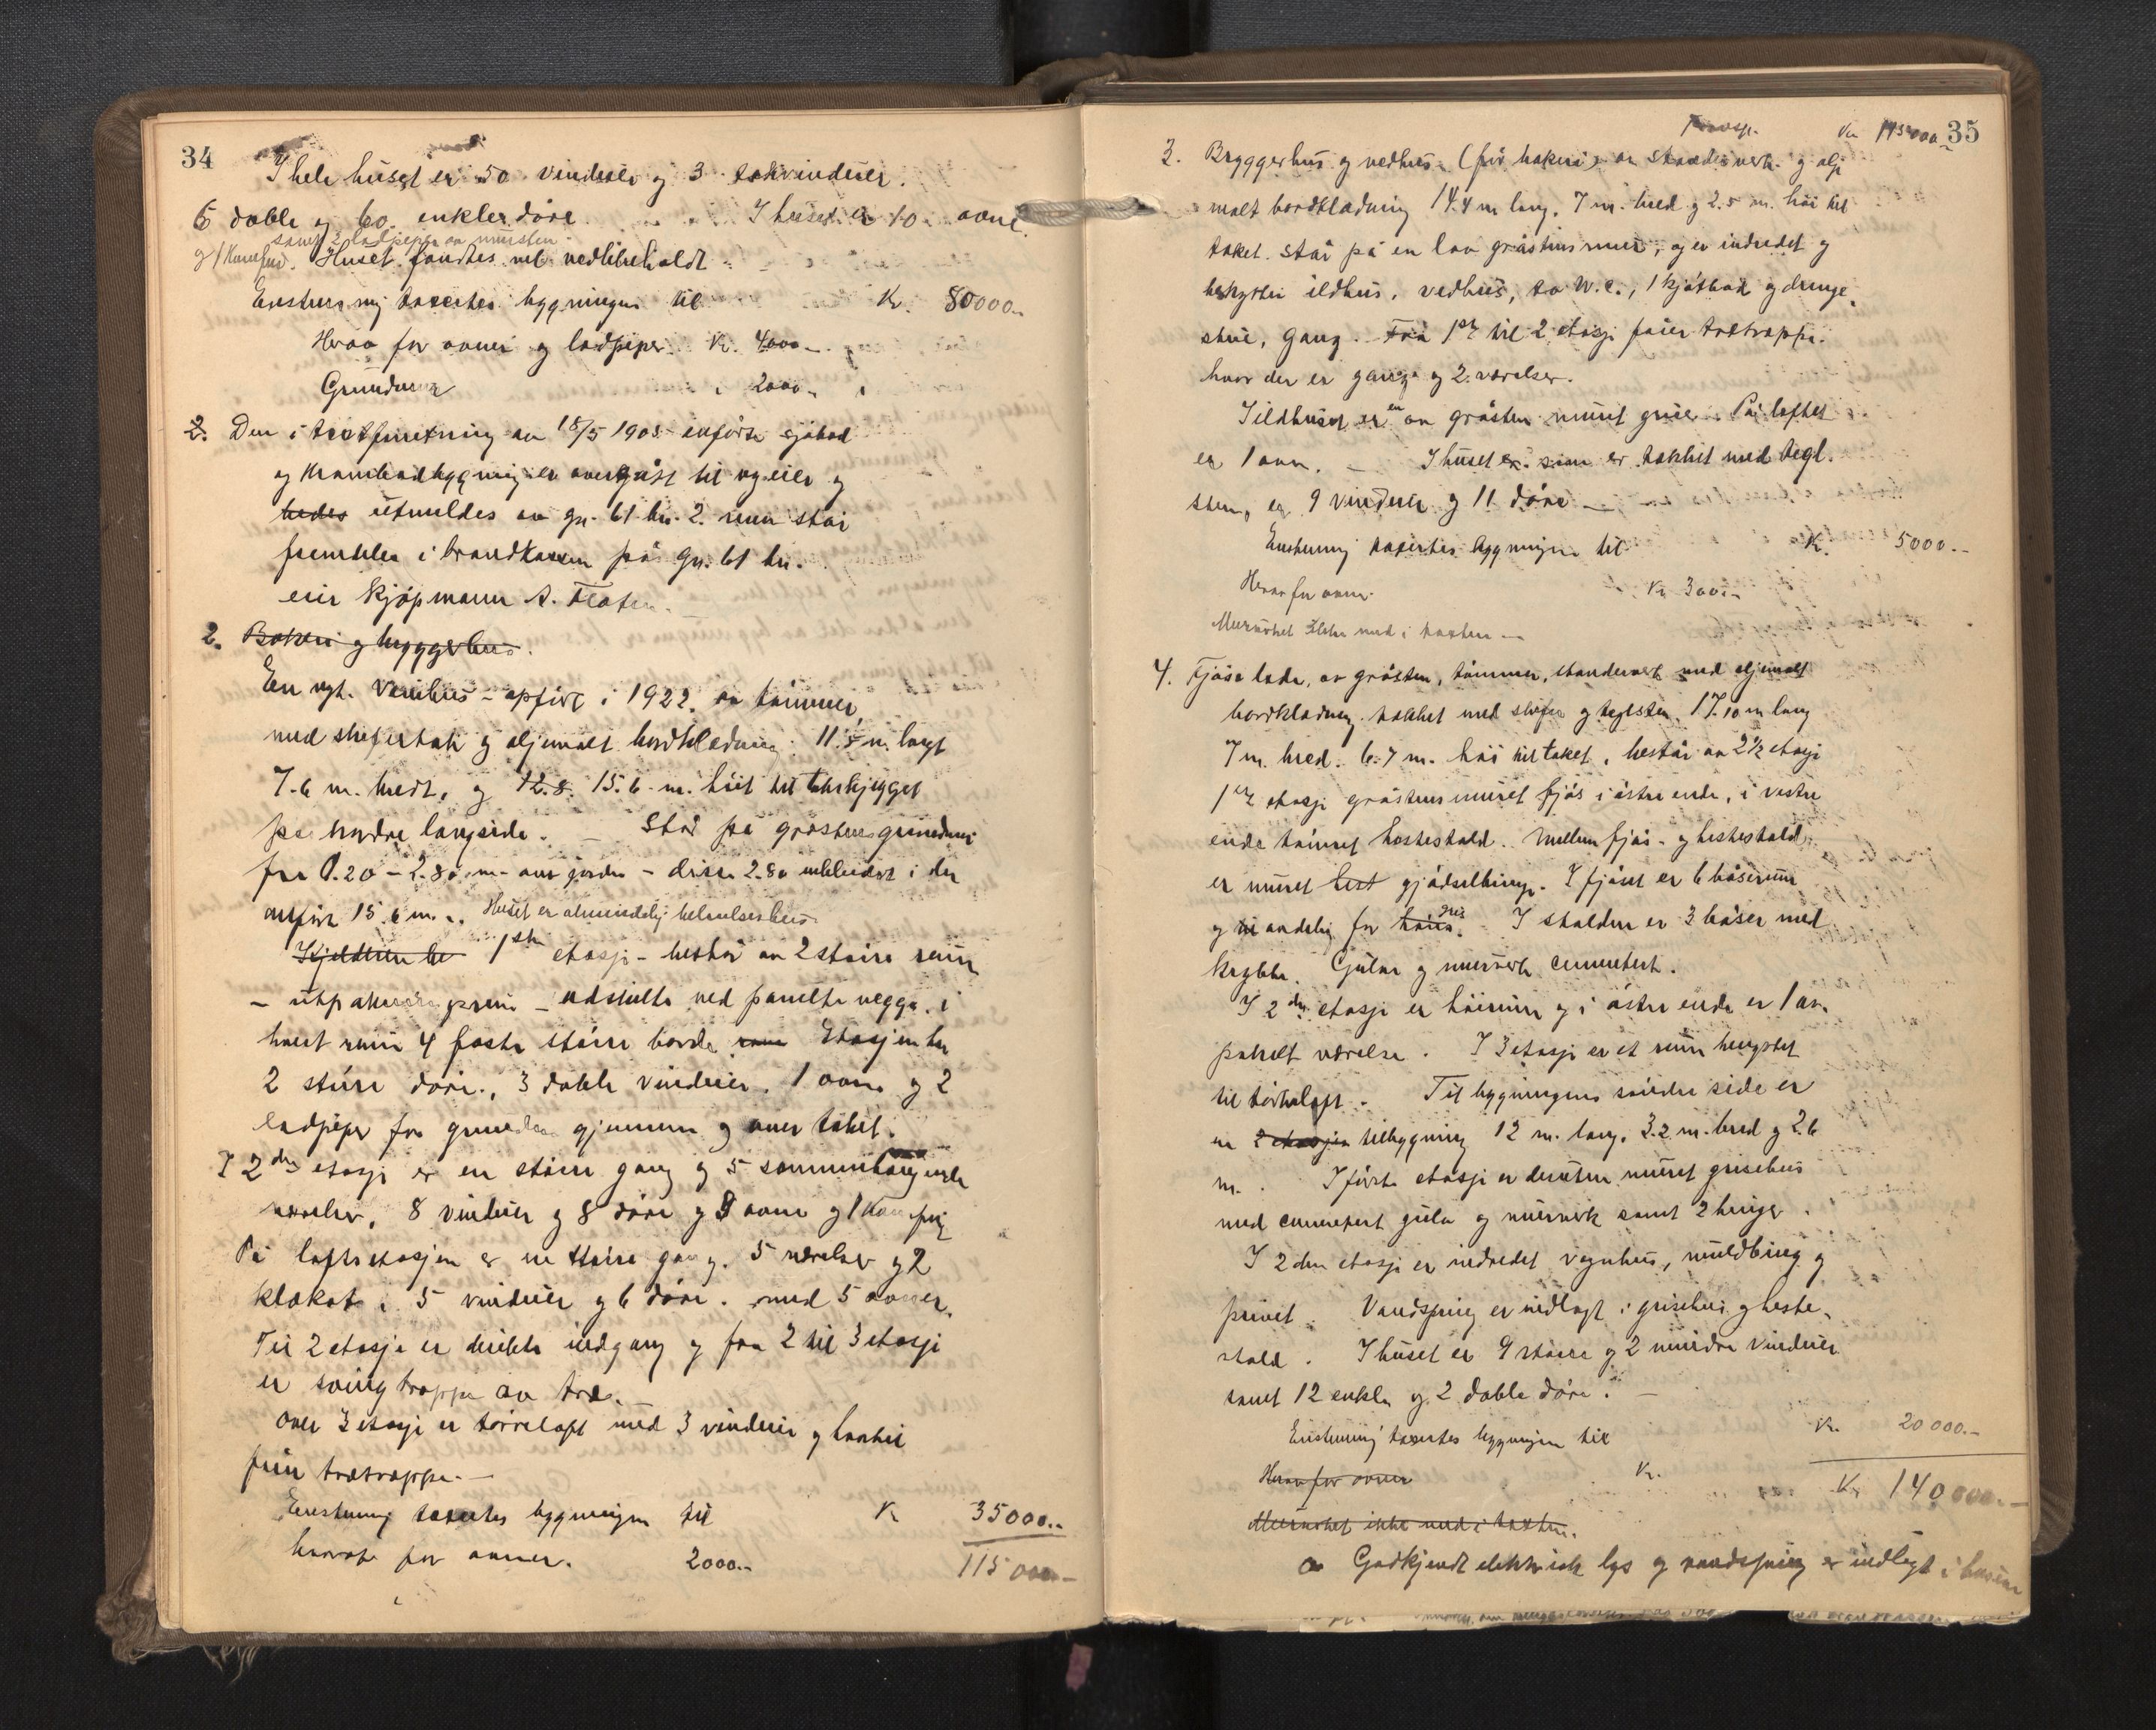 34
I hele huset er 50 vinduer og 3 takvinduer.
6 doble og 60 enkle döre I huset er 10 ovne
samt 2 ladpiper av mursten
og 1 Huset fandtes vel vedlikeholdt
Enstemmig taxertes bygningen til Kr. 80000.-
Herav for ovner og ladpiper Kr. 4000.-
Grundmur " 2000.-
2. Den i takstforretning av 18/5 1908 införte sjöbod
og krambodbygning er overgåt til ny eier og
utmeldes av gr. 61 br. 2. men står
fremdeles i brandkassen på Gr. 61 br.
eier kjöpmann A.
2. Bakeri og bryggerhus.
En nyt. - opfört i 1922. av tömmer
med skifertak og oljemalt bordklædning. 11.5 m. langt
7.6 m. bredt, og 12.8. 15.6 m. höit til takskjegget
på nordre langside. - Står på gråstens grundmur
fra 0.20 - 2.80 m. over jorden - disse 2.80 inkludert i den
anförte 15.6 m. Huset er almindelig beboelseshus
I kjelderen be 1ste etasje - består av 2 större rum
- adskilte ved panelte vegge. i
hvert rum 4 faste större borde Etasjen har
2 större döre, 3 doble vinduer. 1 ovn og 2
ladpiper fra grunden gjennem og over taket.
I 2den etasje er en större gang og 5 sammenhængende
værelser, 8 vinduer og 8 döre og 3 ovne og 1
På loftsetasjen er en större gang. 5 værelser og 2
5 vinduer og 6 döre. med 5 ovner.
Til 2 etasje er direkte indgang og fra 2 til 3 etasje
er svingtrappe av træ.
Over 3 etasje er törreloft med 3 vinduer og hertil
förer trætrappe. -
Enstemmig taxertes bygningen til Kr 35000.-
herav for ovner. 2000.-
115 000.-
35
Transp. Kr 115000.-
3. Bryggerhus og vedhus (för bakeri) av standerverk og olje
malt bordklædning 14.4 m lang. 7 m. bred og 2.5 m. höi til
taket. står på en lav gråstensmur, og er indredet og
benyttes ildhus, vedhus, to W.C., 1 kjötbod og drenge
stue, gang. Fra 1ste til 2 etasje förer trætrappe.
hvor der er gang og 2 værelser.
I ildhuset er en av gråsten muret grue. På loftet
er 1 ovn. - I huset er som er takket med tegl.
sten, er 9 vinduer og 11 döre -
Enstemmig taxertes bygningen til Kr. 5000.-
Herav for ovner. Kr 300.-
Murverket ikke med i taxten -
4. Fjös lade, av gråsten, tömmer, standerverk med oljemalt
bordklædning. takket med skifer og teglsten. 17.10 m lang
7 m. bred. 6.7 m. höi til taket, består av 2 1/2 etasje
1ste etasje gråstensmuret fjös i östre ende, i vestre
ende tömret hestestald. Mellem fjös- og hestestald
er muret hest gjödselbinge. I fjöset er 6 båserum
og avdeling for höns. gris I stalden er 3 båser med
krybbe. Gulv og murverk cementert.
I 2den etasje er höirum og i östre ende er 1 av
panelt værelse. I 3 etasje er et rum benyttet
til törreloft. Til bygningens söndre side er
en 2 etasjes tilbygning 12 m. lang. 3.2 m. bred og 2.6
m. I förste etasje er desuten muret grisehus
med cementert gulv og murverk samt 2 binger.
I 2den etasje er indredet vognhus, muldbing og
privet. Vandspring er indlagt i grisehus og heste
stald. I huset er 9 större og 2 mindre vinduer
samt 12 enkle og 2 doble döre. -
Enstemmig taxertes bygningen til Kr. 20 000.-
Herav for ovner Kr.
Kr 140 000.-
Murverket ikke med i taxten.
Godkjendt elektrisk lys og vandspring er indlagt i husene